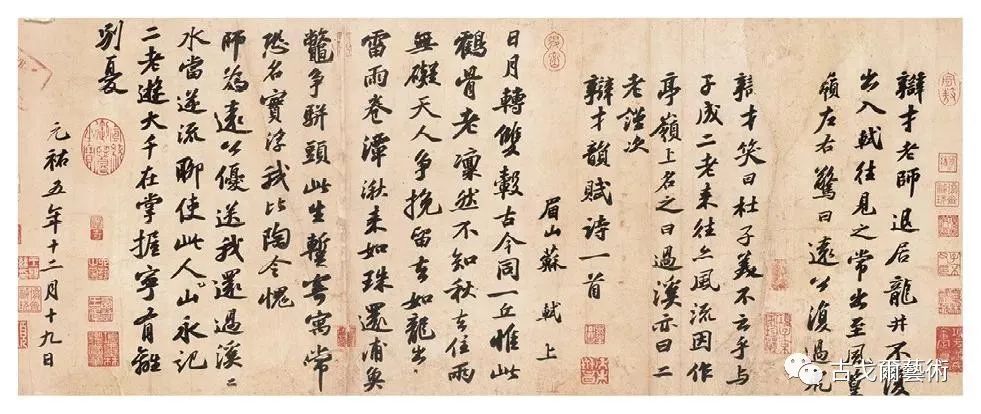 辯才老師退居龍井不復
出入軾往見之常出至風篁
嶺左右驚曰遠公復過虎
辯才笑曰杜子美不云乎與
子成二老来往亦風流因作
亭嶺上名之曰過溪亦曰二
老謹次
辯才韻賦詩一首
眉山蘇軾上
日月轉雙轂古今同一丘惟此
鶴骨老凜然不知秋去住兩
無礙天人爭挽留去如龍出
雷雨卷潭湫来如珠還浦魚
鼈爭駢頭此生暫寄寓常
恐名實浮我比陶令愧
師為遠公優送我還過溪〻
水當逆流聊使此人山永記
二老遊大千在掌握寧有離
別憂
元祐五年十二月十九日
古戈爾藝術